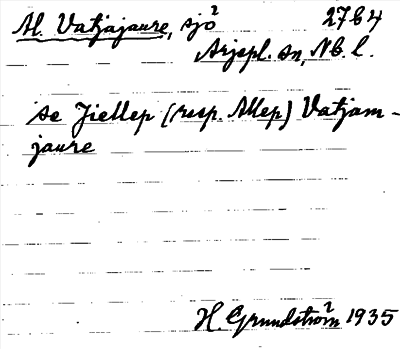 Al. Vatjajaure, sjö 27 E4
Arjepl. sn, Nb. l.
se Jiellep (resp. Allep) Vatjam-
jaure
H. Grundström 1935